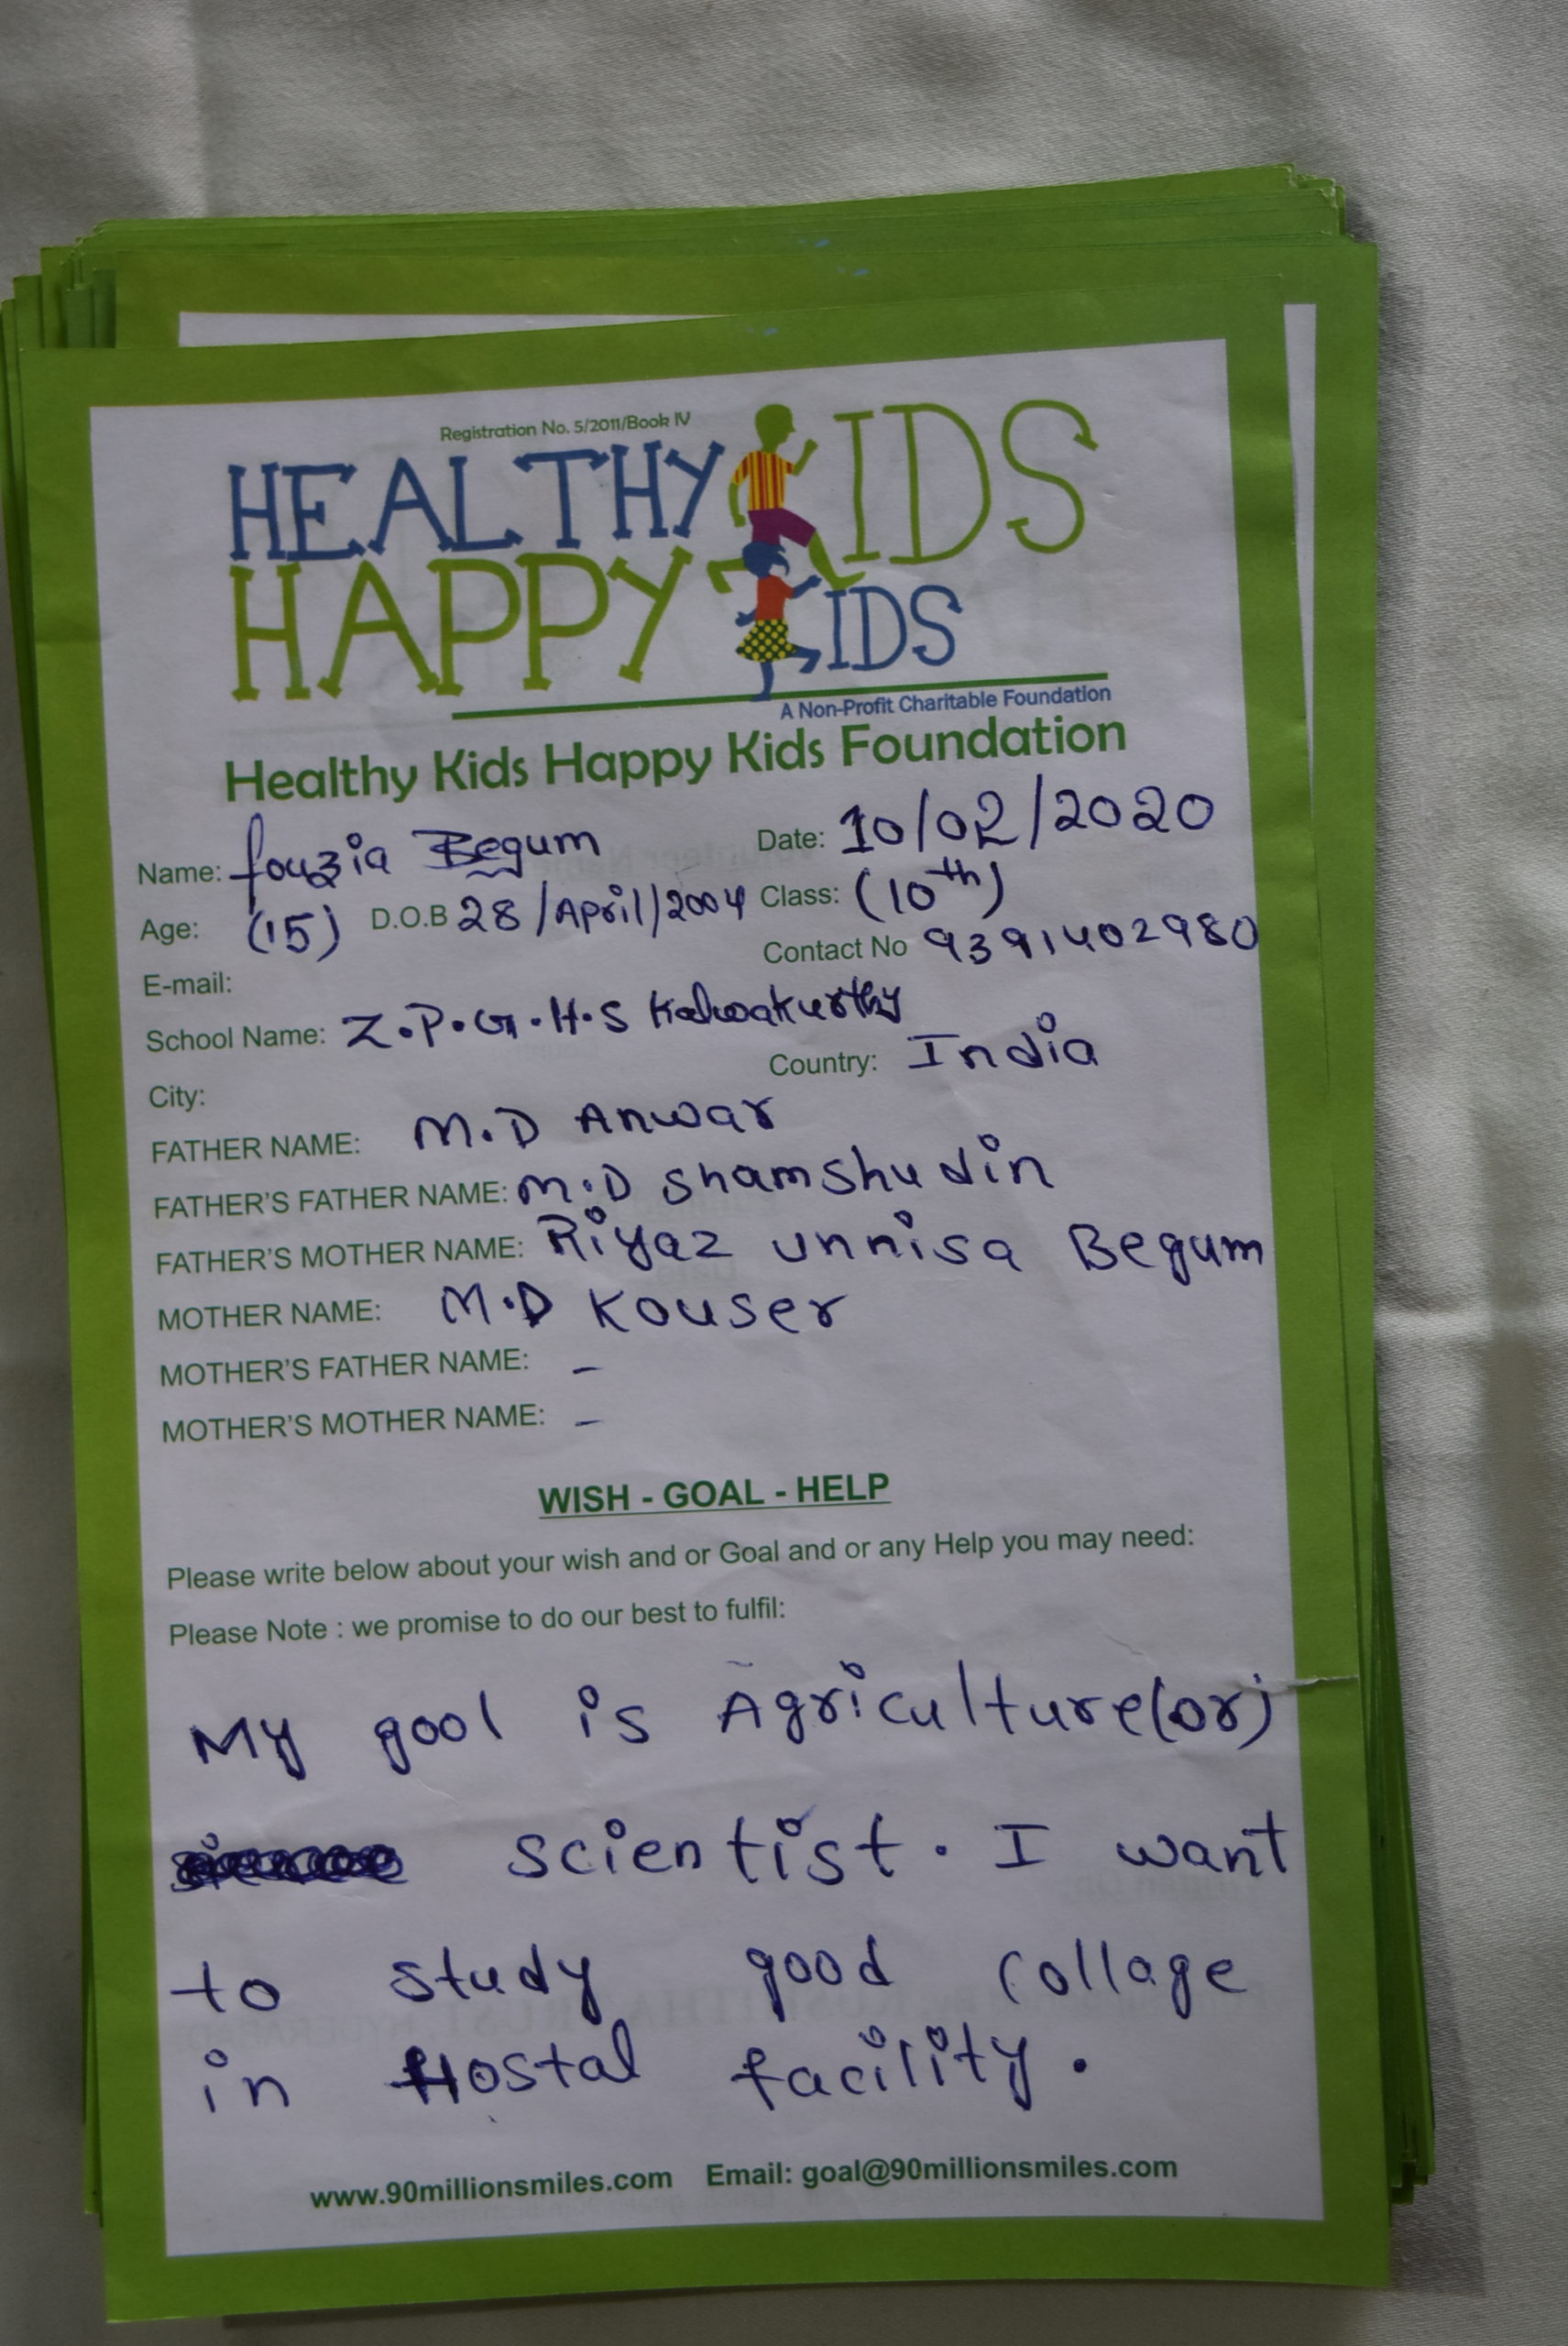 Registration No. 5/2011/Book IV
HEALTHY KIDS
HAPPY KIDS
A Non-Profit Charitable Foundation
Healthy Kids Happy Kids Foundation
Name: fouzia Begum Date: 10/02/2020
Age: (15) D.O.B 28/April/2004 Class: (10th)
E-mail: Contact No 9391402980
School Name: Z.P.G.H.S Kalwakurthy
City: Country: India
FATHER NAME: M.D Anwar
FATHER'S FATHER NAME: M.D Shamshudin
FATHER'S MOTHER NAME: Riyaz unnisa Begum
MOTHER NAME: M.D Kouser
MOTHER'S FATHER NAME: -
MOTHER'S MOTHER NAME: -
WISH - GOAL - HELP
Please write below about your wish and or Goal and or any Help you may need:
Please Note : we promise to do our best to fulfil:
My gool is Agriculture(or)
scientist. I want
to study good collage
in Hostal facility.
www.90millionsmiles.com Email: goal@90millionsmiles.com